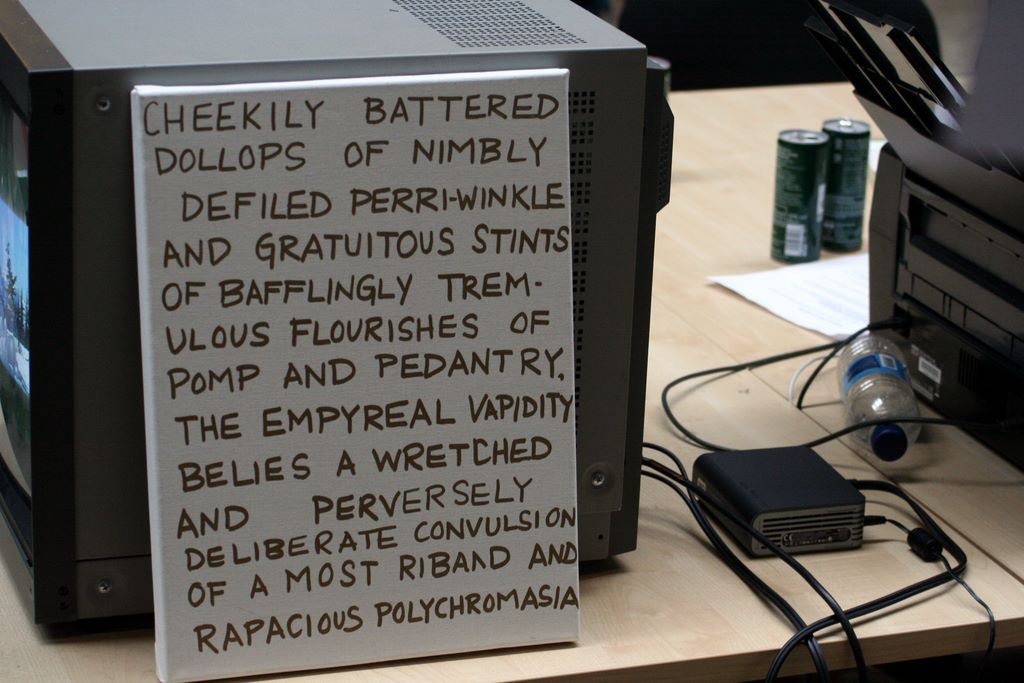 CHEEKILY BATTERED
DOLLOPS OF NIMBLY
DEFILED PERRI-WINKLE
AND GRATUITOUS STINTS
OF BAFFLINGLY TREM-
ULOUS FLOURISHES OF
POMP AND PEDANTRY.
THE EMPYREAL VAPIDITY
BELIES A WRETCHED
AND PERVERSELY
DELIBERATE CONVULSION
OF A MOST RIBAND AND
RAPACIOUS POLYCHROMASIA